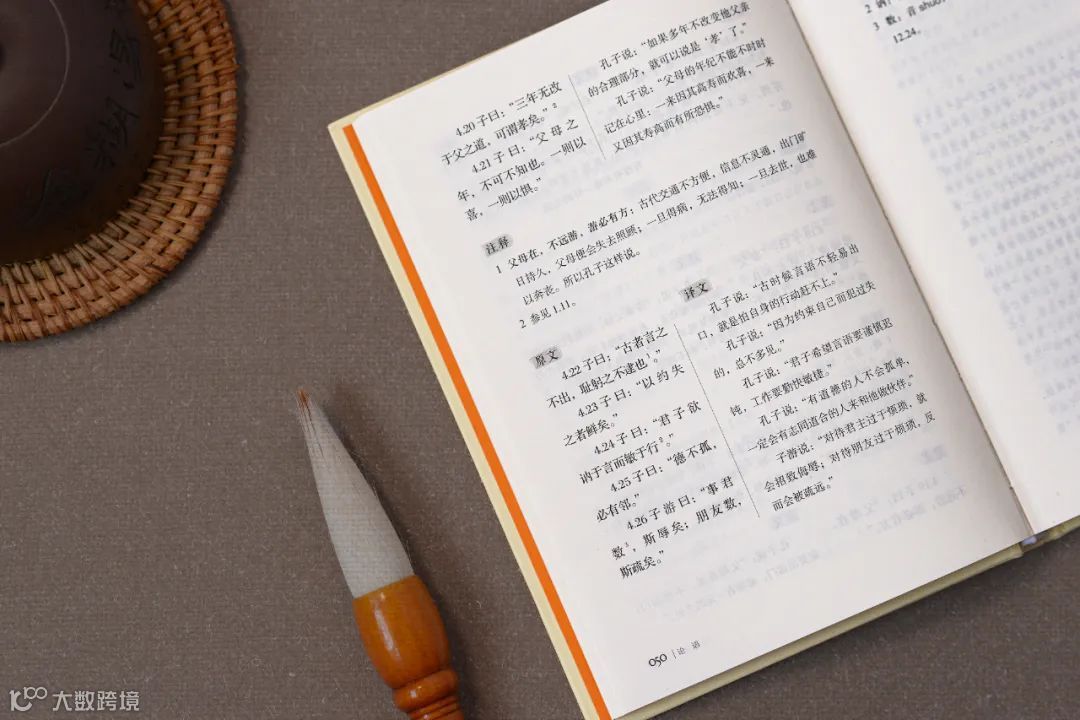 4.20 子曰：“三年无改
于父之道，可谓孝矣。”²
4.21 子曰：“父母之
年，不可不知也。一则以
喜，一则以惧。”
孔子说：“如果多年不改变他父亲
的合理部分，就可以说是‘孝’了。”
孔子说：“父母的年纪不能不时时
记在心里：一来因其高寿而欢喜，一来
又因其寿高而有所恐惧。”
注释
1 父母在，不远游，游必有方：古代交通不方便，信息不灵通，出门旷
日持久，父母便会失去照顾；一旦得病，无法得知；一旦去世，也难
以奔丧。所以孔子这样说。
2 参见 1.11。
原文
4.22 子曰：“古者言之
不出，耻躬之不逮也¹。”
4.23 子曰：“以约失
之者鲜矣。”
4.24 子曰：“君子欲
讷于言而敏于行²。”
4.25 子曰：“德不孤，
必有邻。”
4.26 子游曰：“事君
数³，斯辱矣；朋友数，
斯疏矣。”
译文
孔子说：“古时候言语不轻易出
口，就是怕自身的行动赶不上。”
孔子说：“因为约束自己而犯过失
的，总不多见。”
孔子说：“君子希望言语要谨慎迟
钝，工作要勤快敏捷。”
孔子说：“有道德的人不会孤单，
一定会有志同道合的人来和他做伙伴。”
子游说：“对待君主过于烦琐，就
会招致侮辱；对待朋友过于烦琐，反
而会被疏远。”
050 | 论 语
2 讷：
3 数：音 shuò，
12.24。
大数跨境